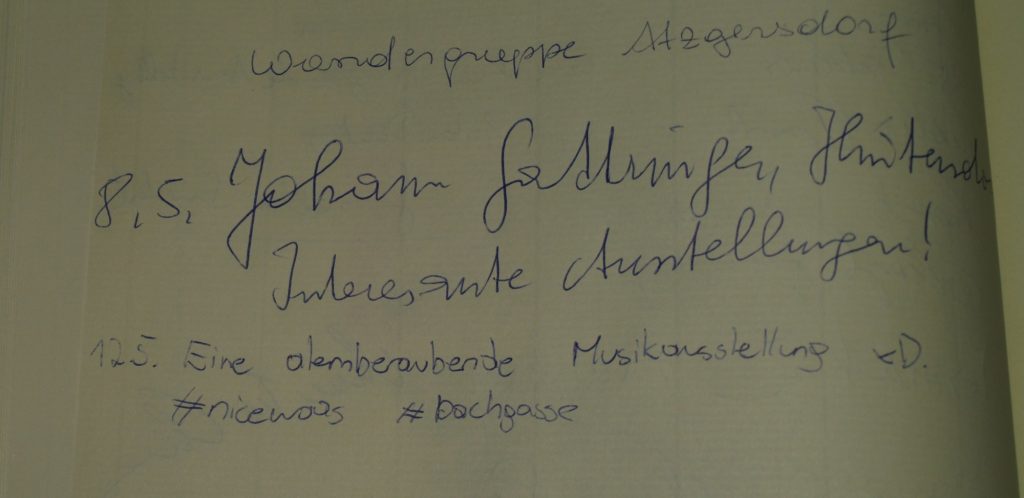 Wandergruppe Atzgersdorf
8.5. Johann Gattringer,
Interessante Ausstellungen!
12.5. Eine atemberaubende Musikausstellung xD.
#nicewoas #bachgasse